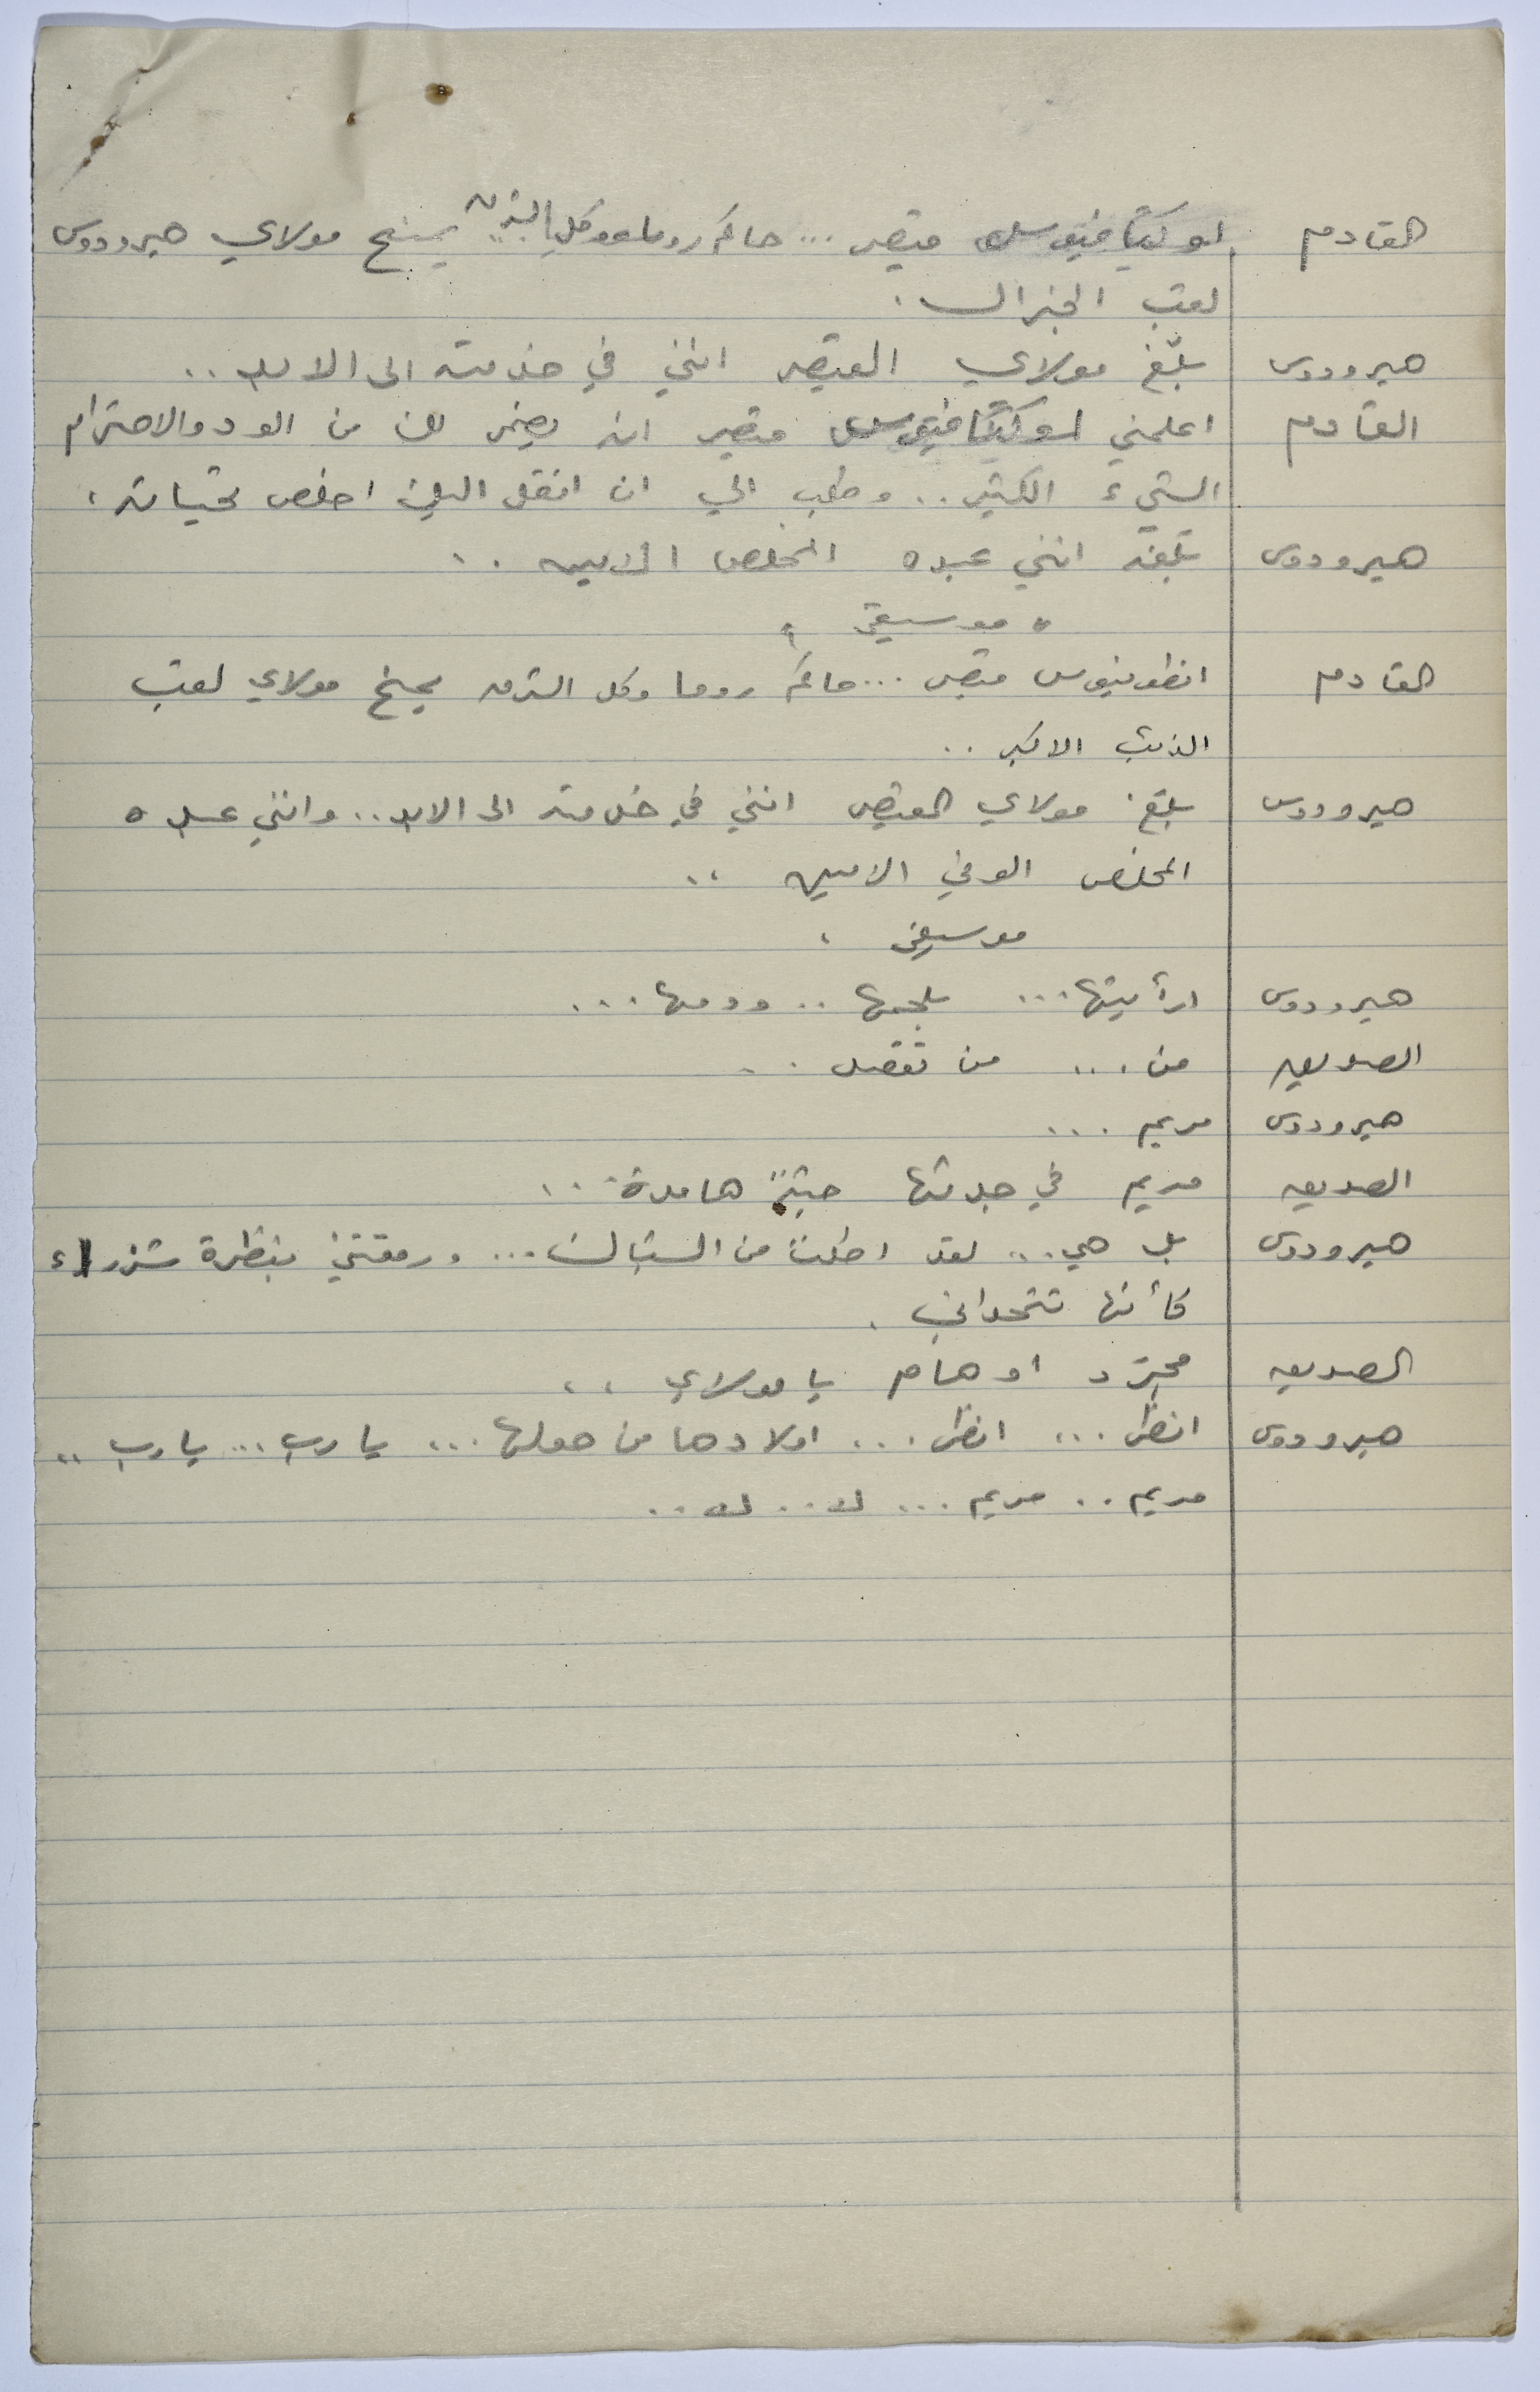 القادم اوكتافيوس قيصر ... حاكم روما وكل الشرق يمنح مولاي هيرودوس
لقب الجنرال .
هيرودوس بلّغ مولاي القيصر انني في خدمته الى الابد ..
القادم اعلمني اوكتافيوس قيصر انه يضمر لك من الود والاحترام
الشيء الكثير .. وطلب الي ان انقل اليك اخلص تحياته .
هيرودوس بلّغه انني عبده المخلص الامين ..
" موسيقى "
القادم انطونيوس قيصر ... حاكم روما وكل الشرق يمنح مولاي لقب
الذئب الاكبر ..
هيرودوس بلّغ مولاي القيصر انني في خدمته الى الابد .. وانني عبده
المخلص الوفي الامين ..
موسيقى .
هيرودوس ارأيتها ... بلحمها .. ودمها ...
الصديق من ... من تقصد ..
هيرودوس مريم ...
الصديق مريم في جدثها جثّة هامدة ...
هيرودوس بل هي ... لقد اطلت من الشباك ... ورمقتني بنظرة شزراء
كأنها تتحداني .
الصديق مجرّد اوهام يا مولاي ..
هيرودوس انظر ... انظر ... اولادها من حولها ... يا رب ... يا رب ..
مريم .. مريم ... لا .. لا ..